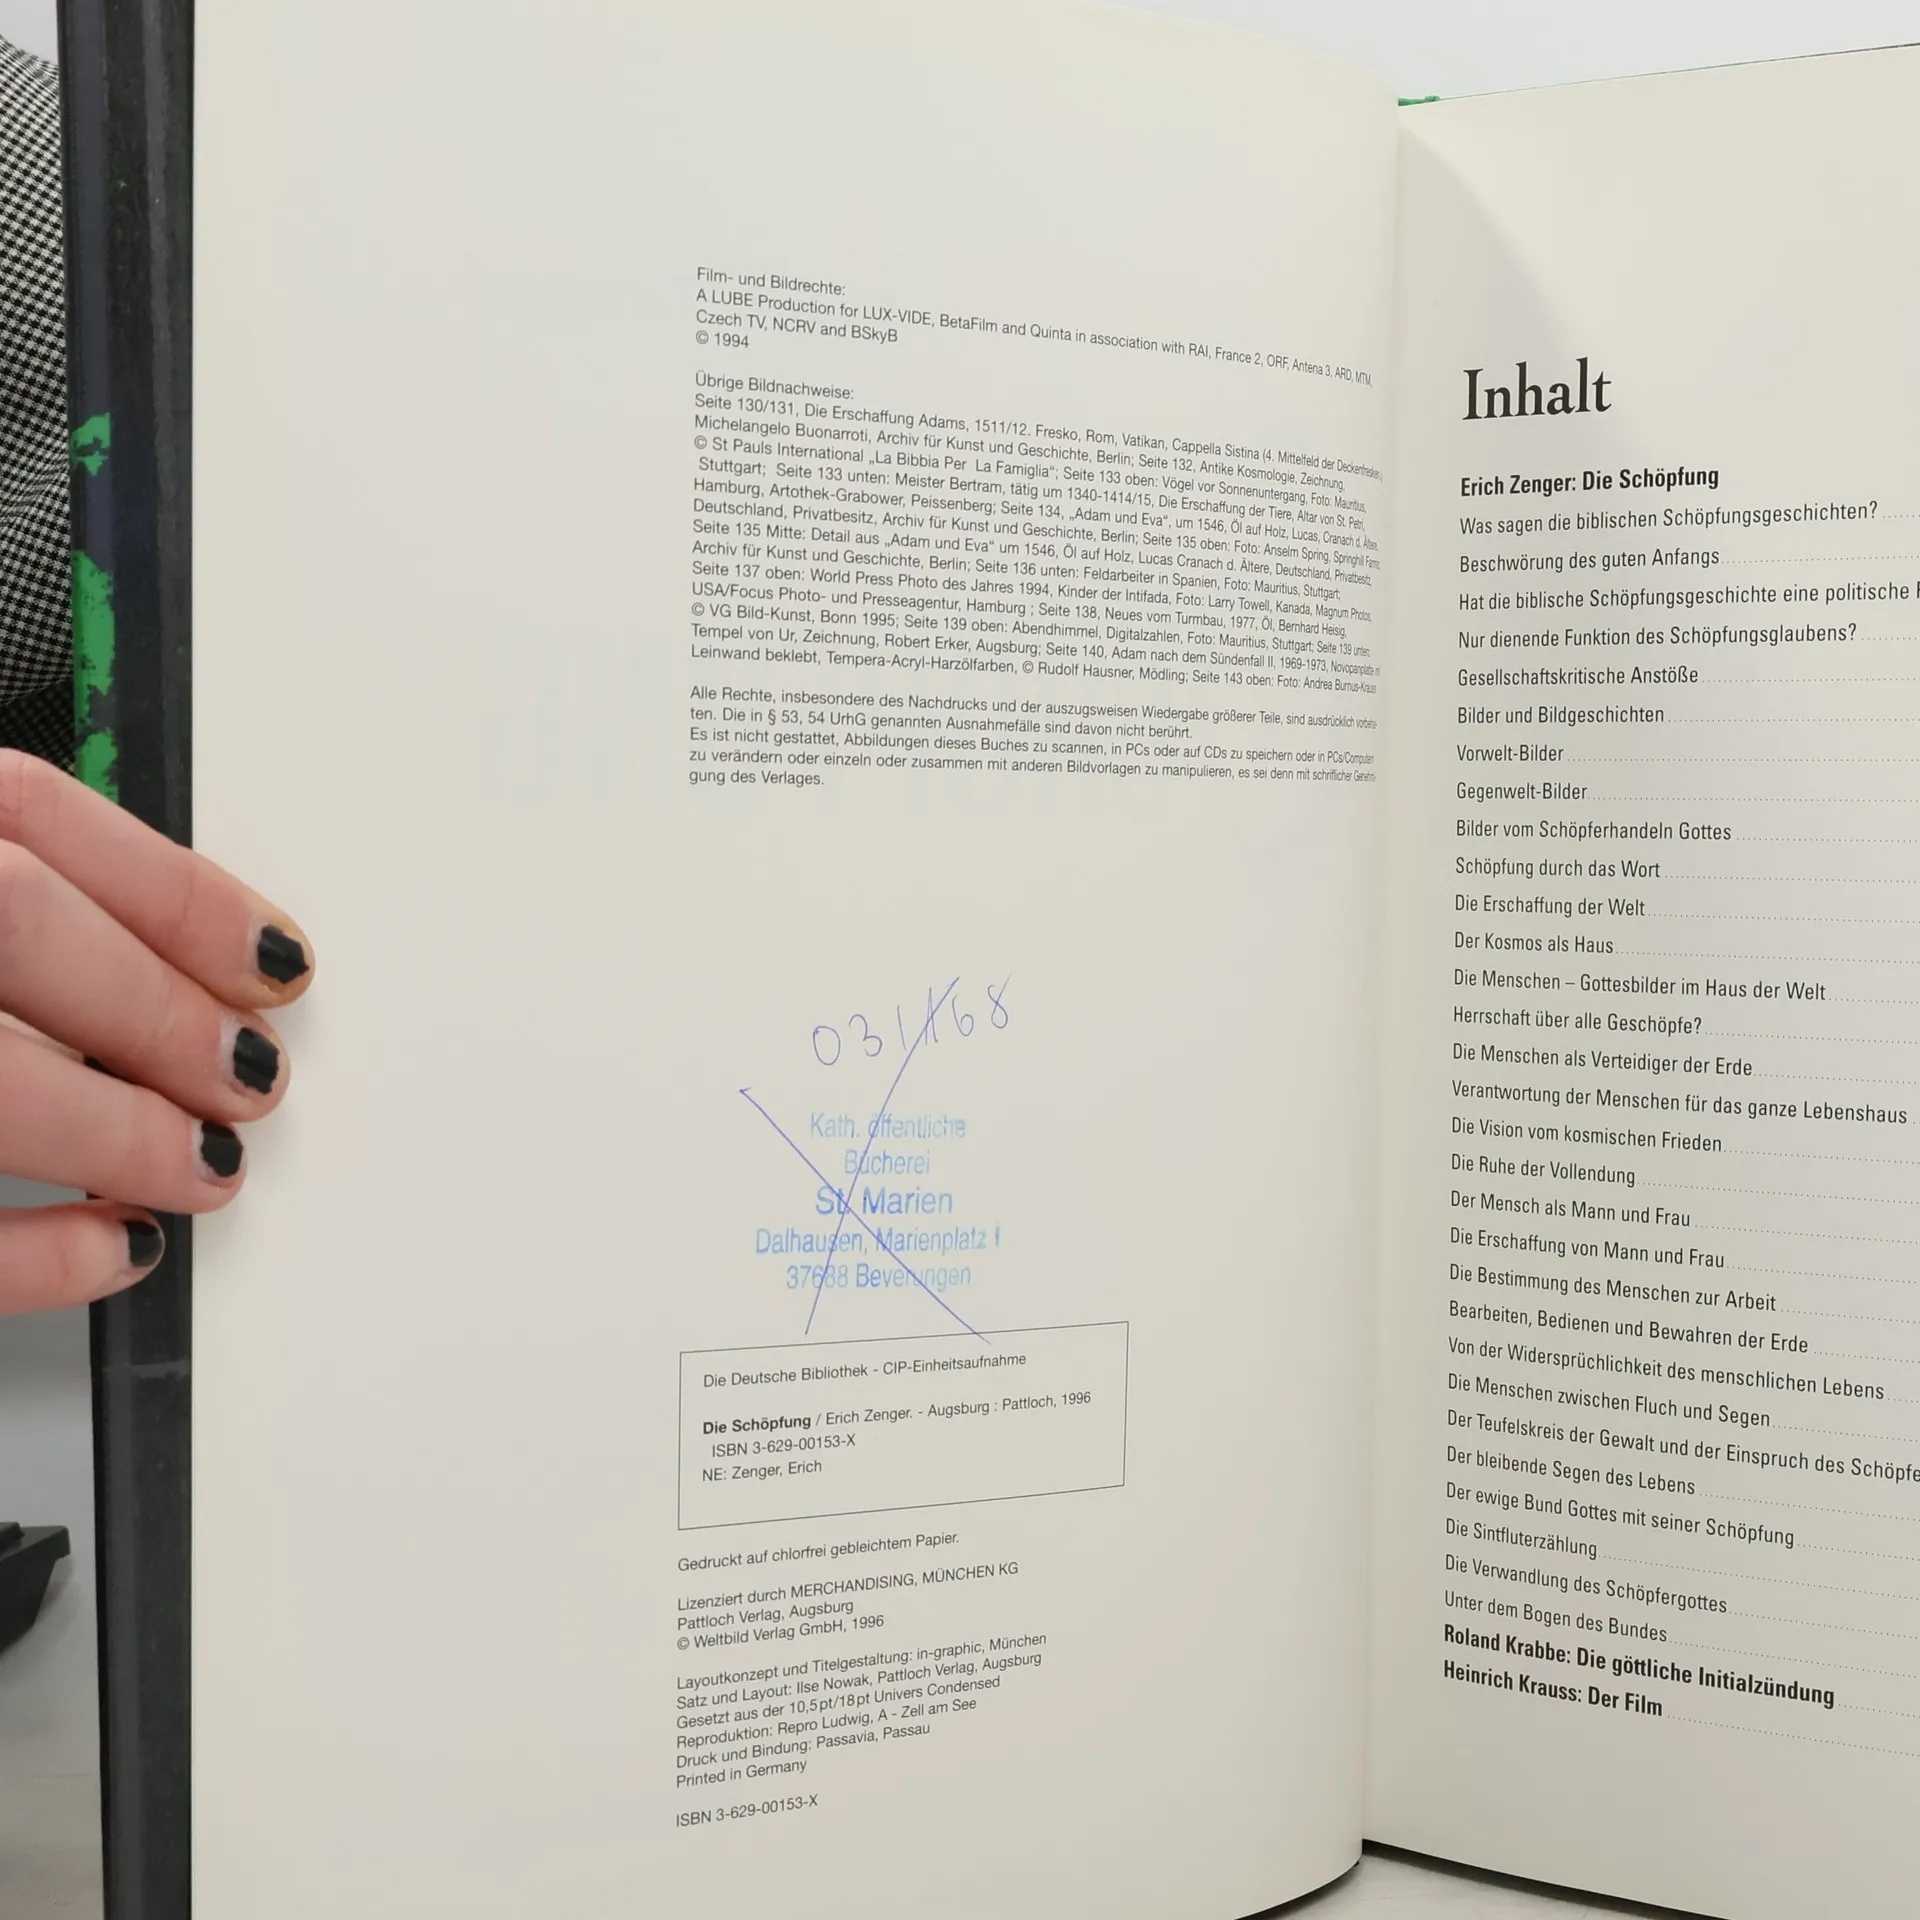 Film- und Bildrechte:
A LUBE Production for LUX-VIDE, BetaFilm and Quinta in association with RAI, France 2, ORF, Antena 3, ARD, MTM,
Czech TV, NCRV and BSkyB
© 1994
Übrige Bildnachweise:
Seite 130/131, Die Erschaffung Adams, 1511/12. Fresko, Rom, Vatikan, Cappella Sistina (4. Mittelfeld der Deckenfresken)
Michelangelo Buonarroti, Archiv für Kunst und Geschichte, Berlin; Seite 132, Antike Kosmologie, Zeichnung,
© St Pauls International „La Bibbia Per La Famiglia“; Seite 133 oben: Vögel vor Sonnenuntergang, Foto: Mauritius,
Stuttgart; Seite 133 unten: Meister Bertram, tätig um 1340-1414/15, Die Erschaffung der Tiere, Altar von St. Petri,
Hamburg, Artothek-Grabower, Peissenberg; Seite 134, „Adam und Eva“, um 1546, Öl auf Holz, Lucas, Cranach d. Ältere,
Deutschland, Privatbesitz, Archiv für Kunst und Geschichte, Berlin; Seite 135 oben: Foto: Anselm Spring, Springhill Farm;
Seite 135 Mitte: Detail aus „Adam und Eva“ um 1546, Öl auf Holz, Lucas Cranach d. Ältere, Deutschland, Privatbesitz,
Archiv für Kunst und Geschichte, Berlin; Seite 136 unten: Feldarbeiter in Spanien, Foto: Mauritius, Stuttgart;
Seite 137 oben: World Press Photo des Jahres 1994, Kinder der Intifada, Foto: Larry Towell, Kanada, Magnum Photos,
USA/Focus Photo- und Presseagentur, Hamburg ; Seite 138, Neues vom Turmbau, 1977, Öl, Bernhard Heisig,
© VG Bild-Kunst, Bonn 1995; Seite 139 oben: Abendhimmel, Digitalzahlen, Foto: Mauritius, Stuttgart; Seite 139 unten:
Tempel von Ur, Zeichnung, Robert Erker, Augsburg; Seite 140, Adam nach dem Sündenfall II, 1969-1973, Novopanplatte
Leinwand beklebt, Tempera-Acryl-Harzölfarben, © Rudolf Hausner, Mödling; Seite 143 oben: Foto: Andrea Burnus-Krauss
Alle Rechte, insbesondere des Nachdrucks und der auszugsweisen Wiedergabe größerer Teile, sind ausdrücklich vorbehal-
ten. Die in § 53, 54 UrhG genannten Ausnahmefälle sind davon nicht berührt.
Es ist nicht gestattet, Abbildungen dieses Buches zu scannen, in PCs oder auf CDs zu speichern oder in PCs/Computern
zu verändern oder einzeln oder zusammen mit anderen Bildvorlagen zu manipulieren, es sei denn mit schriftlicher Genehmi-
gung des Verlages.
Kath. öffentliche
Bücherei
St. Marien
Dalhausen, Marienplatz 1
37688 Beverungen
Die Deutsche Bibliothek - CIP-Einheitsaufnahme
Die Schöpfung / Erich Zenger. - Augsburg : Pattloch, 1996
ISBN 3-629-00153-X
NE: Zenger, Erich
Gedruckt auf chlorfrei gebleichtem Papier.
Lizenziert durch MERCHANDISING, MÜNCHEN KG
Pattloch Verlag, Augsburg
© Weltbild Verlag GmbH, 1996
Layoutkonzept und Titelgestaltung: in-graphic, München
Satz und Layout: Ilse Nowak, Pattloch Verlag, Augsburg
Gesetzt aus der 10,5pt/18pt Univers Condensed
Reproduktion: Repro Ludwig, A - Zell am See
Druck und Bindung: Passavia, Passau
Printed in Germany
ISBN 3-629-00153-X
Inhalt
Erich Zenger: Die Schöpfung
Was sagen die biblischen Schöpfungsgeschichten?
Beschwörung des guten Anfangs
Hat die biblische Schöpfungsgeschichte eine politische
Nur dienende Funktion des Schöpfungsglaubens?
Gesellschaftskritische Anstöße
Bilder und Bildgeschichten
Vorwelt-Bilder
Gegenwelt-Bilder
Bilder vom Schöpferhandeln Gottes
Schöpfung durch das Wort
Die Erschaffung der Welt
Der Kosmos als Haus
Die Menschen – Gottesbilder im Haus der Welt
Herrschaft über alle Geschöpfe?
Die Menschen als Verteidiger der Erde
Verantwortung der Menschen für das ganze Lebenshaus
Die Vision vom kosmischen Frieden
Die Ruhe der Vollendung
Der Mensch als Mann und Frau
Die Erschaffung von Mann und Frau
Die Bestimmung des Menschen zur Arbeit
Bearbeiten, Bedienen und Bewahren der Erde
Von der Widersprüchlichkeit des menschlichen Lebens
Die Menschen zwischen Fluch und Segen
Der Teufelskreis der Gewalt und der Einspruch des Schöpfe
Der bleibende Segen des Lebens
Der ewige Bund Gottes mit seiner Schöpfung
Die Sintfluterzählung
Die Verwandlung des Schöpfergottes
Unter dem Bogen des Bundes
Roland Krabbe: Die göttliche Initialzündung
Heinrich Krauss: Der Film